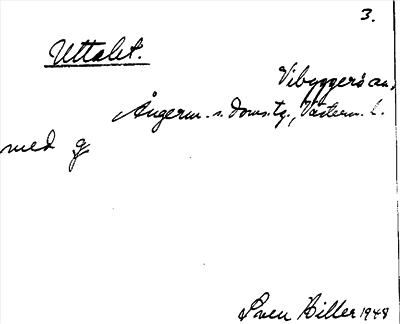 3.
Uttalet.
Vibyggerå an,
Ångerm. s. doms.tg., Västern. l.
med g
Sven Hiller 1948